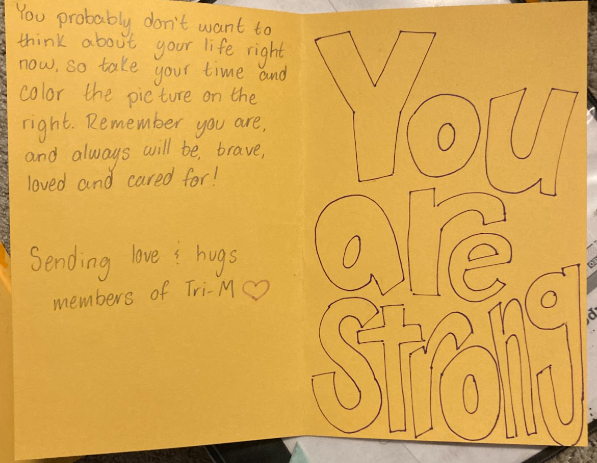 You probably don't want to
think about your life right
now, so take your time and
color the picture on the
right. Remember you are,
and always will be, brave,
loved and cared for!
Sending love & hugs
members of Tri-M ♡
You
are
Strong